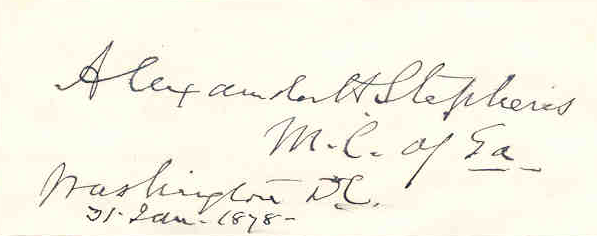 Alexander H Stephens
M.C. of Ga
Washington D.C.
31 Jan - 1878 -